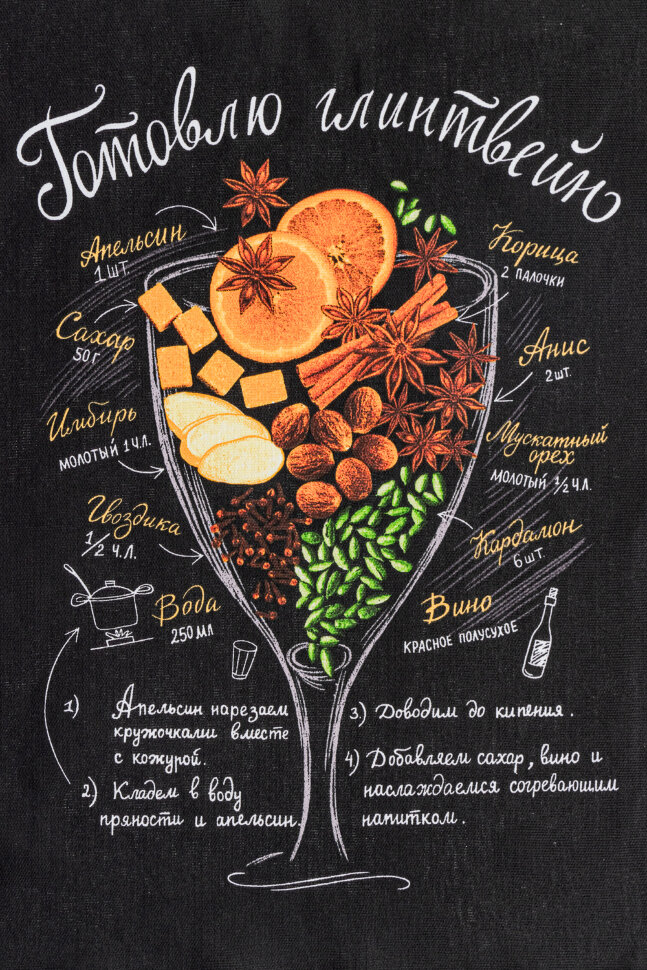 Готовлю глинтвейн
Апельсин
1 шт.
Сахар
50 г
Имбирь
молотый 1 ч.л.
Гвоздика
1/2 ч.л.
Вода
250 мл
Корица
2 палочки
Анис
2 шт.
Мускатный
орех
молотый 1/2 ч.л.
Кардамон
6 шт.
Вино
красное полусухое
1) Апельсин нарезаем
кружочками вместе
с кожурой.
2) Кладем в воду
пряности и апельсин.
3) Доводим до кипения.
4) Добавляем сахар, вино и
наслаждаемся согревающим
напитком.